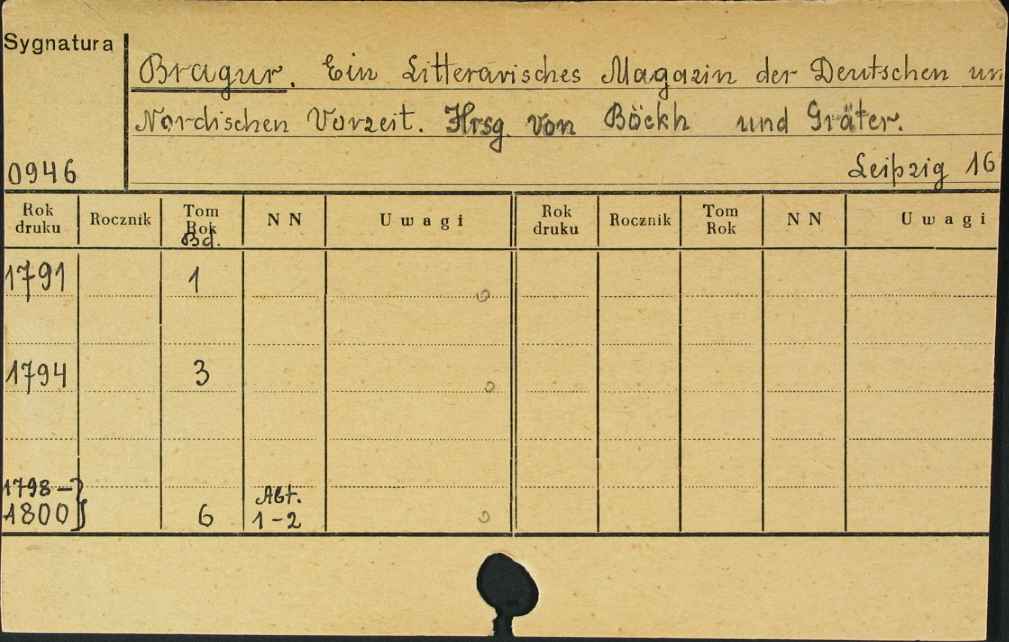 Sygnatura
Bragur. Ein Litterarisches Magazin der Deutschen un
Nordischen Vorzeit. Hrsg. von Böckh und Gräter.
0946
Leipzig 16
Rok druku Rocznik Tom Rok Bd. N N Uwagi Rok druku Rocznik Tom Rok N N Uwagi
1791 1
1794 3
1798 – Abt.
1800 6 1-2